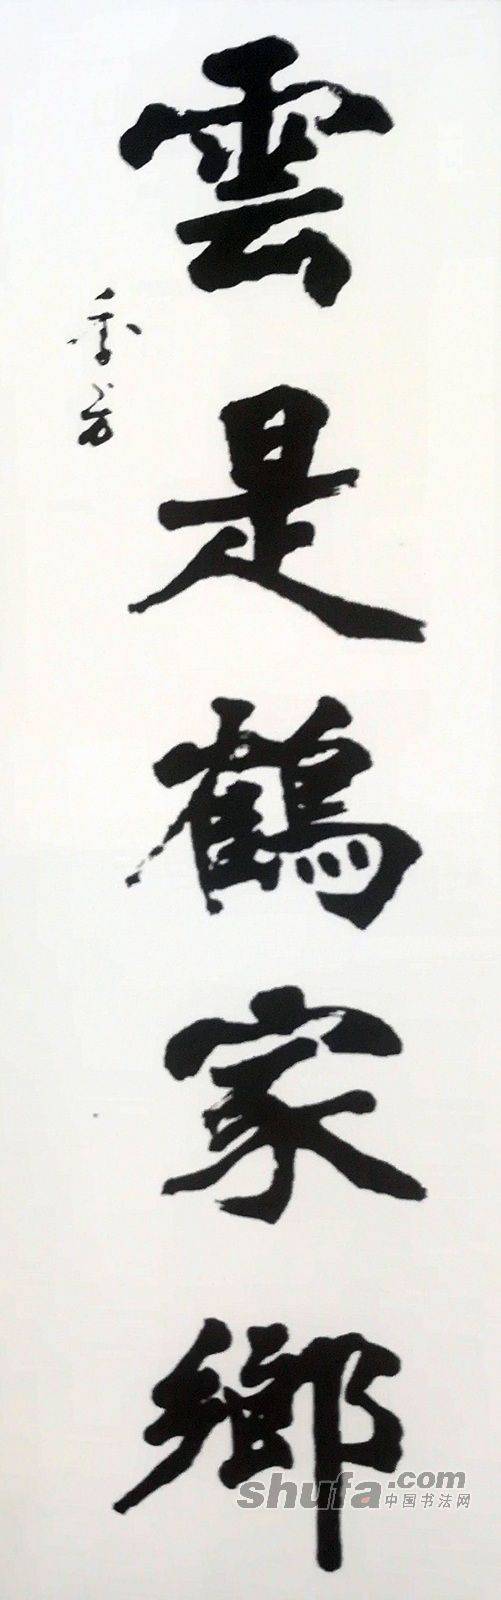 雲是鶴家鄉
shufa.com
中国书法网